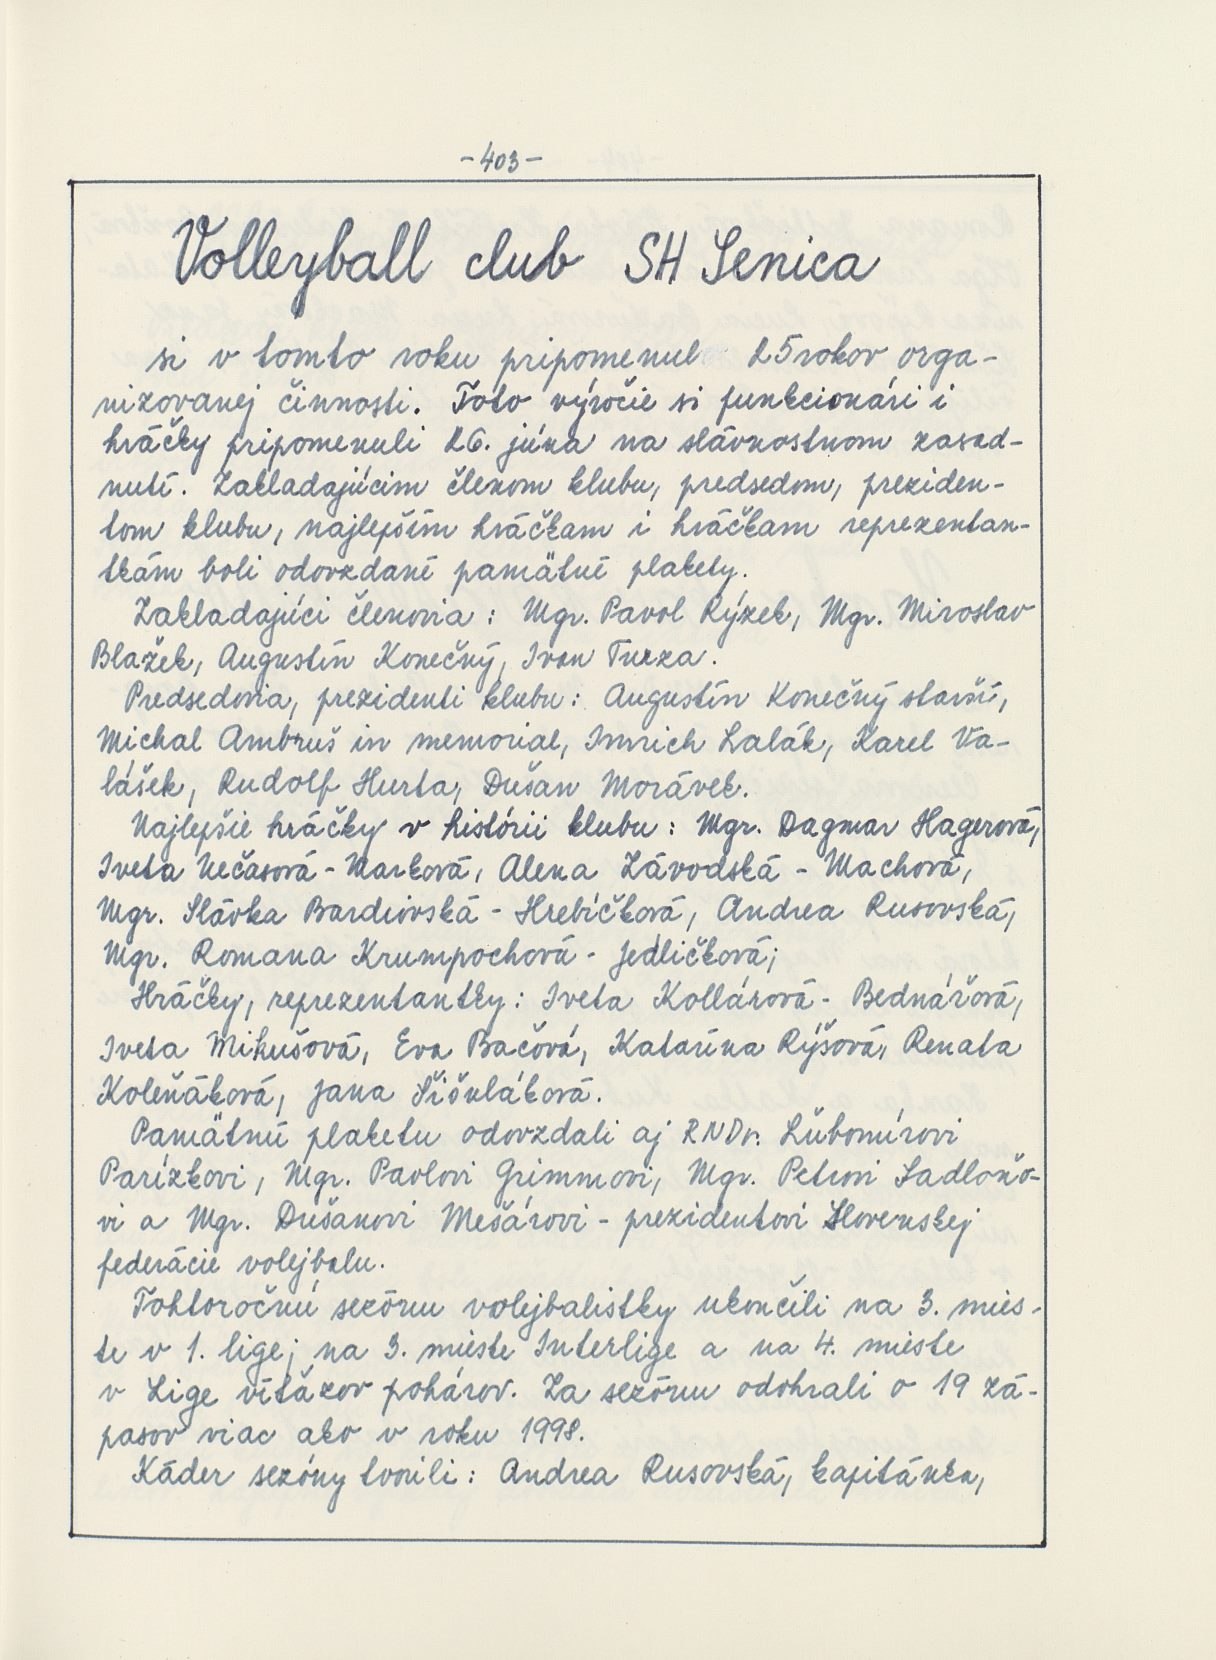 -403-
Volleyball club SH Senica
si v tomto roku pripomenul 25 rokov orga-
nizovanej činnosti. Toto výročie si funkcionári i
hráčky pripomenuli 26. júna na slávnostnom zasad-
nutí. Zakladajúcim členom klubu, predsedom, preziden-
tom klubu, najlepším hráčkam i hráčkam reprezentan-
tkám boli odovzdané pamätné plakety.
Zakladajúci členovia: Mgr. Pavol Rýzek, Mgr. Miroslav
Blažek, Augustín Konečný, Ivan Turza.
Predsedovia, prezidenti klubu: Augustín Konečný starší,
Michal Ambruš in memorial, Imrich Lalák, Karel Va-
lášek, Rudolf Hurta, Dušan Morávek.
Najlepšie hráčky v histórii klubu: Mgr. Dagmar Hagerová,
Iveta Nečasová - Marková, Alena Závodská - Machová,
Mgr. Slávka Bardiovská - Hrebíčková, Andrea Rusovská,
Mgr. Romana Krumpochová - Jedličková;
Hráčky, reprezentantky: Iveta Kollárová - Bednářová,
Iveta Mikušová, Eva Bačová, Katarína Rýšová, Renata
Koleňáková, Jana Šišuláková.
Pamätnú plaketu odovzdali aj RNDr. Ľubomírovi
Parízkovi, Mgr. Pavlovi Grimmovi, Mgr. Petrovi Sadloňo-
vi a Mgr. Dušanovi Mešárovi - prezidentovi Slovenskej
federácie volejbalu.
Tohtoročnú sezónu volejbalistky ukončili na 3. mies-
te v 1. lige; na 3. mieste Interlige a na 4. mieste
v Lige víťazov pohárov. Za sezónu odohrali o 19 zá-
pasov viac ako v roku 1998.
Káder sezóny tvorili: Andrea Rusovská, kapitánka,